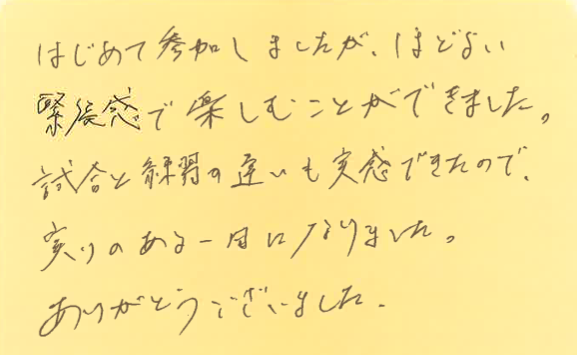 はじめて参加しましたが、ほどよい
緊張感で楽しむことができました。
試合と練習の違いも実感できたので、
実りのある一日になりました。
ありがとうございました.